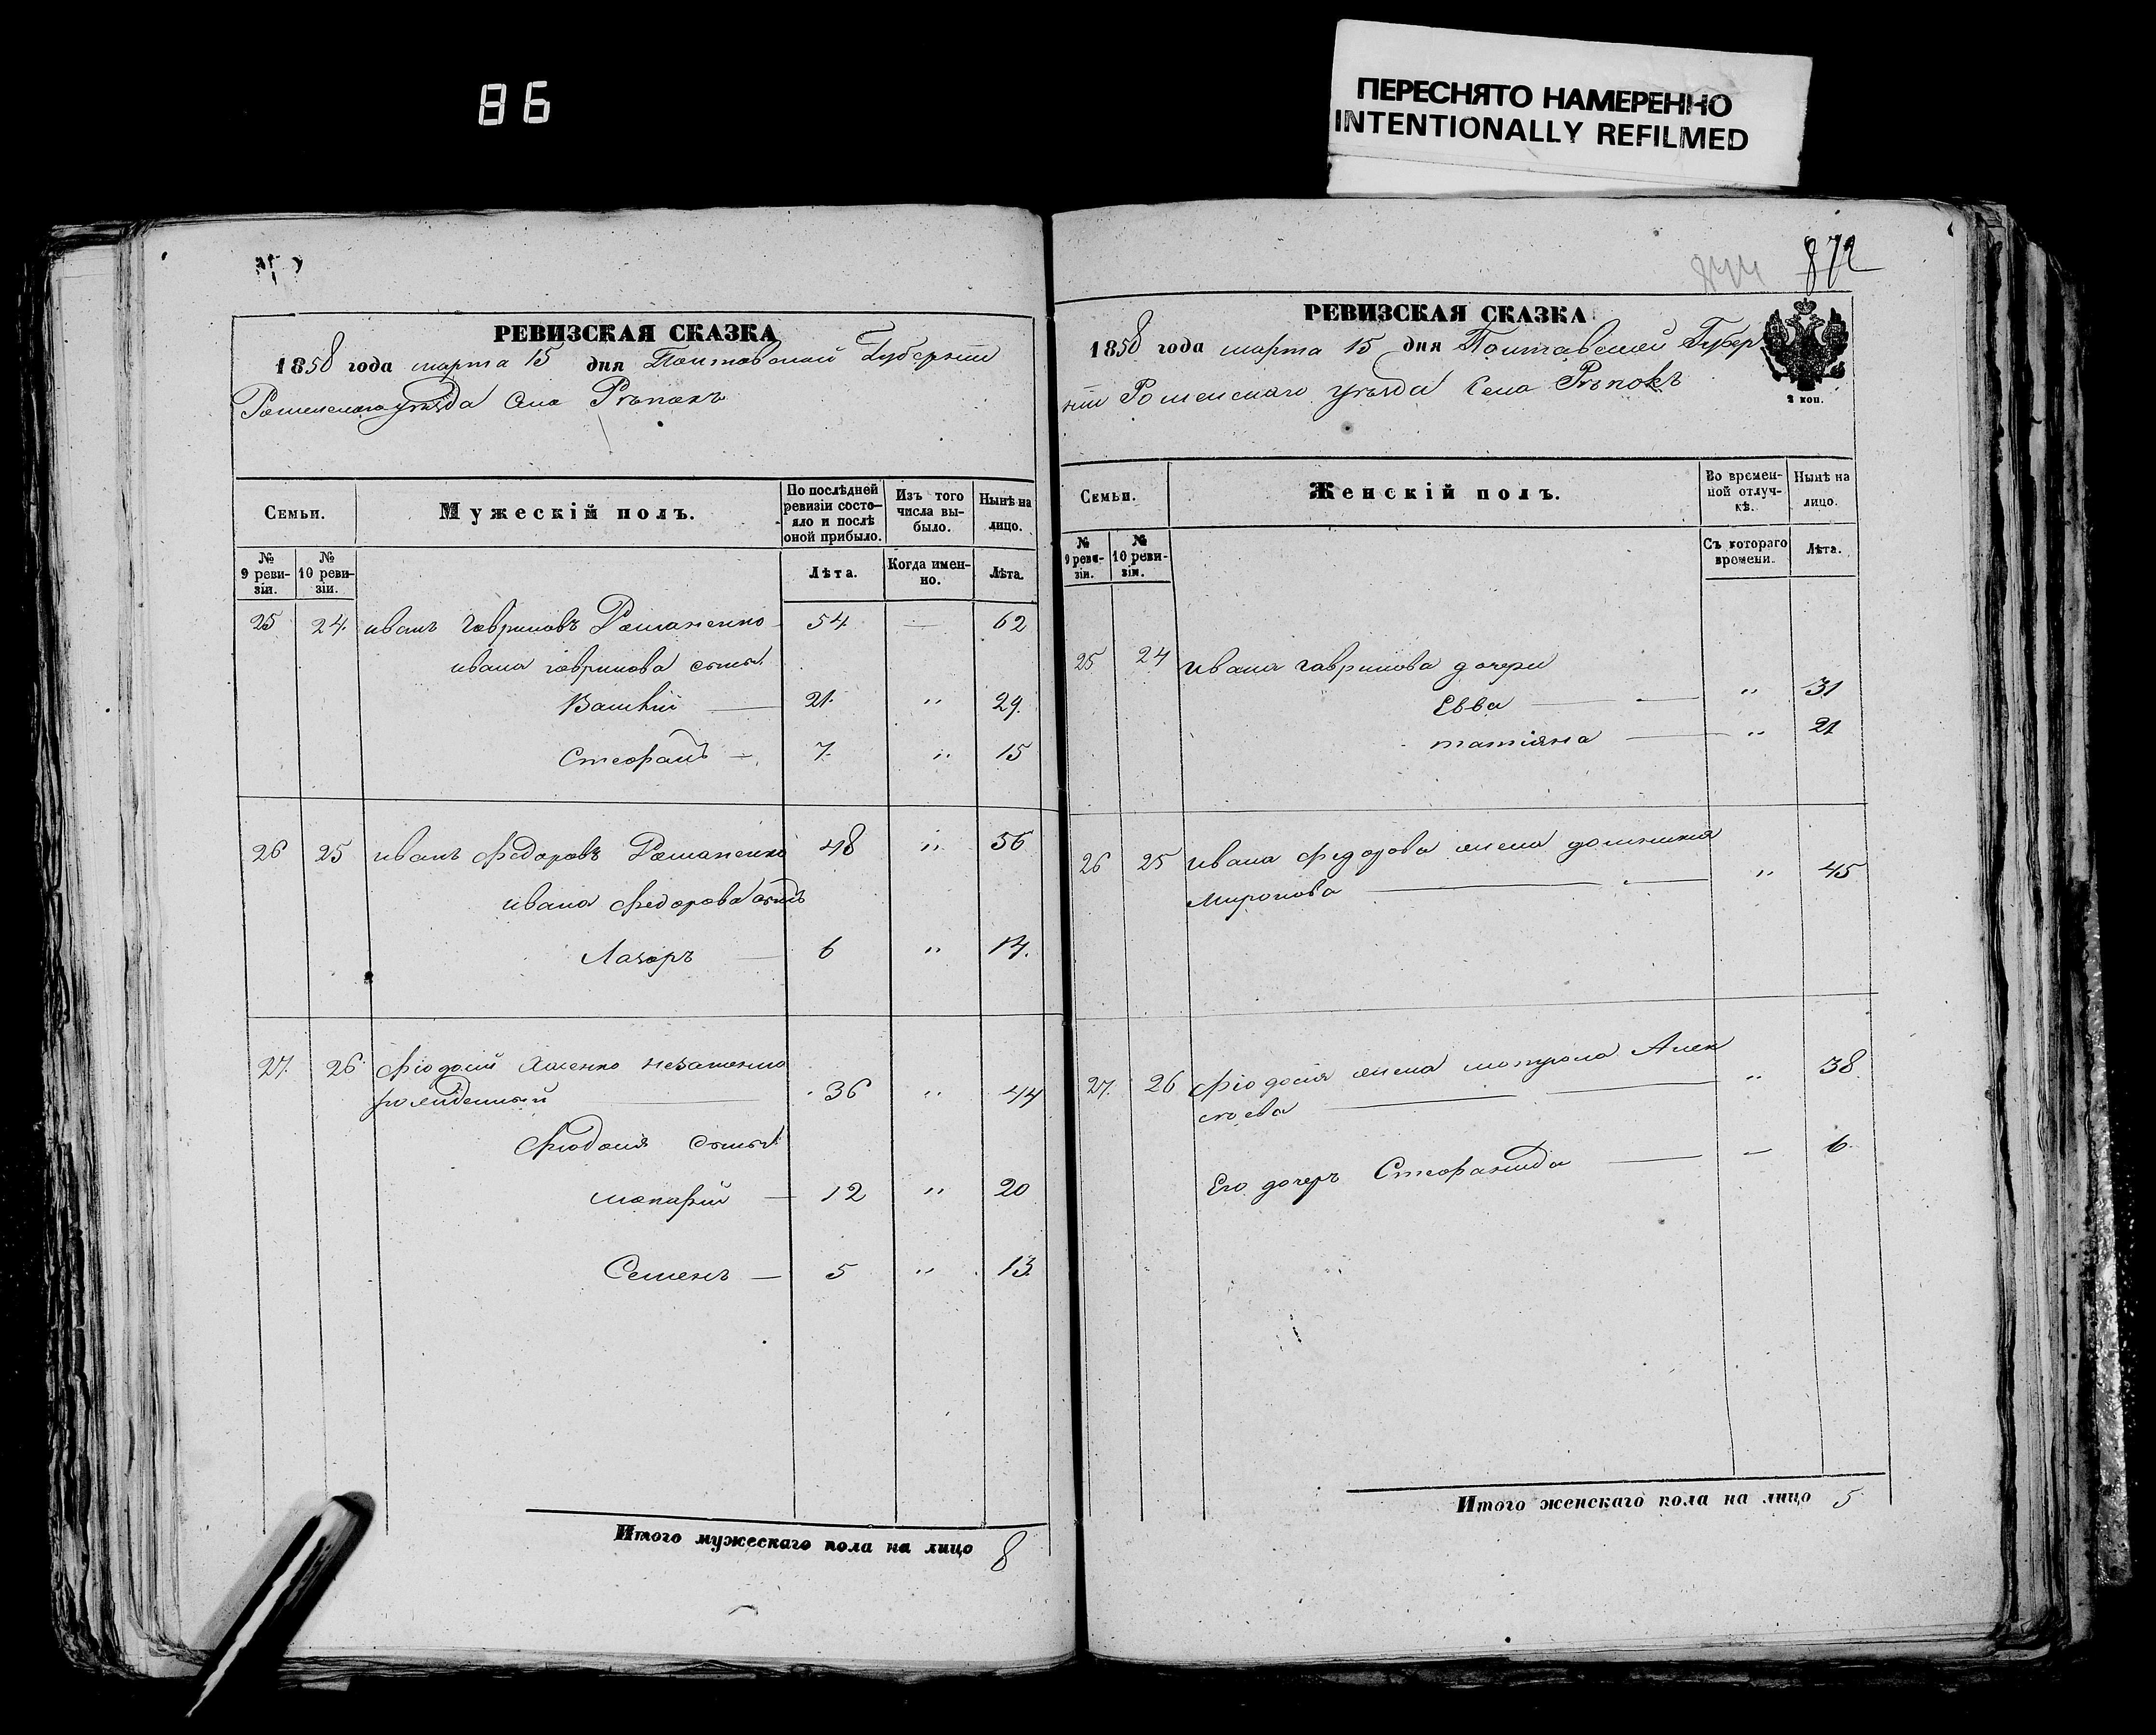 86
ПЕРЕСНЯТО НАМЕРЕННО
INTENTIONALLY REFILMED
РЕВИЗСКАЯ СКАЗКА
1858 года марта 15 дня Полтавской Губернии
Роменскаго уѣзда Села Рѣпокъ
Семьи.
Мужескій полъ.
По послѣдней ревизіи состояло и послѣ оной прибыло.
Изъ того числа выбыло.
Нынѣ на лицо.
№ 9 ревизіи.
№ 10 ревизіи.
Лѣта.
Когда именно.
Лѣта.
25 24. иванъ Гавриловъ Романенко 54 — 62
ивана гаврилова сыны
Василій — 21. " 29.
Стефанъ — 7. " 15
26 25 иванъ Федоровъ Романенко 48 " 56
ивана Федорова сынъ
Лазарь — 6 " 14.
27. 26 Фіодосій незаконно
рожденный — 36 " 44
Фіодосія сыны
макарій — 12 " 20
Семенъ — 5 " 13
Итого мужескаго пола на лицо 8
872
РЕВИЗСКАЯ СКАЗКА
1858 года марта 15 дня Полтавской Губер
ніи Роменскаго уѣзда Села Рѣпокъ
2 коп.
Семьи.
Женскій полъ.
Во временной отлучкѣ.
Нынѣ на лицо.
№ 9 ревизіи.
№ 10 ревизіи.
Съ котораго времени.
Лѣта.
25 24 ивана гаврилова дочери
Евва — " 31
татіяна — " 21
26 25 ивана Федорова жена домникия
миронова — " 45
27. 26 Фіодосія жена Алек
сѣева — " 38
Его дочеръ Стефанида — — 6
Итого женскаго пола на лицо 5